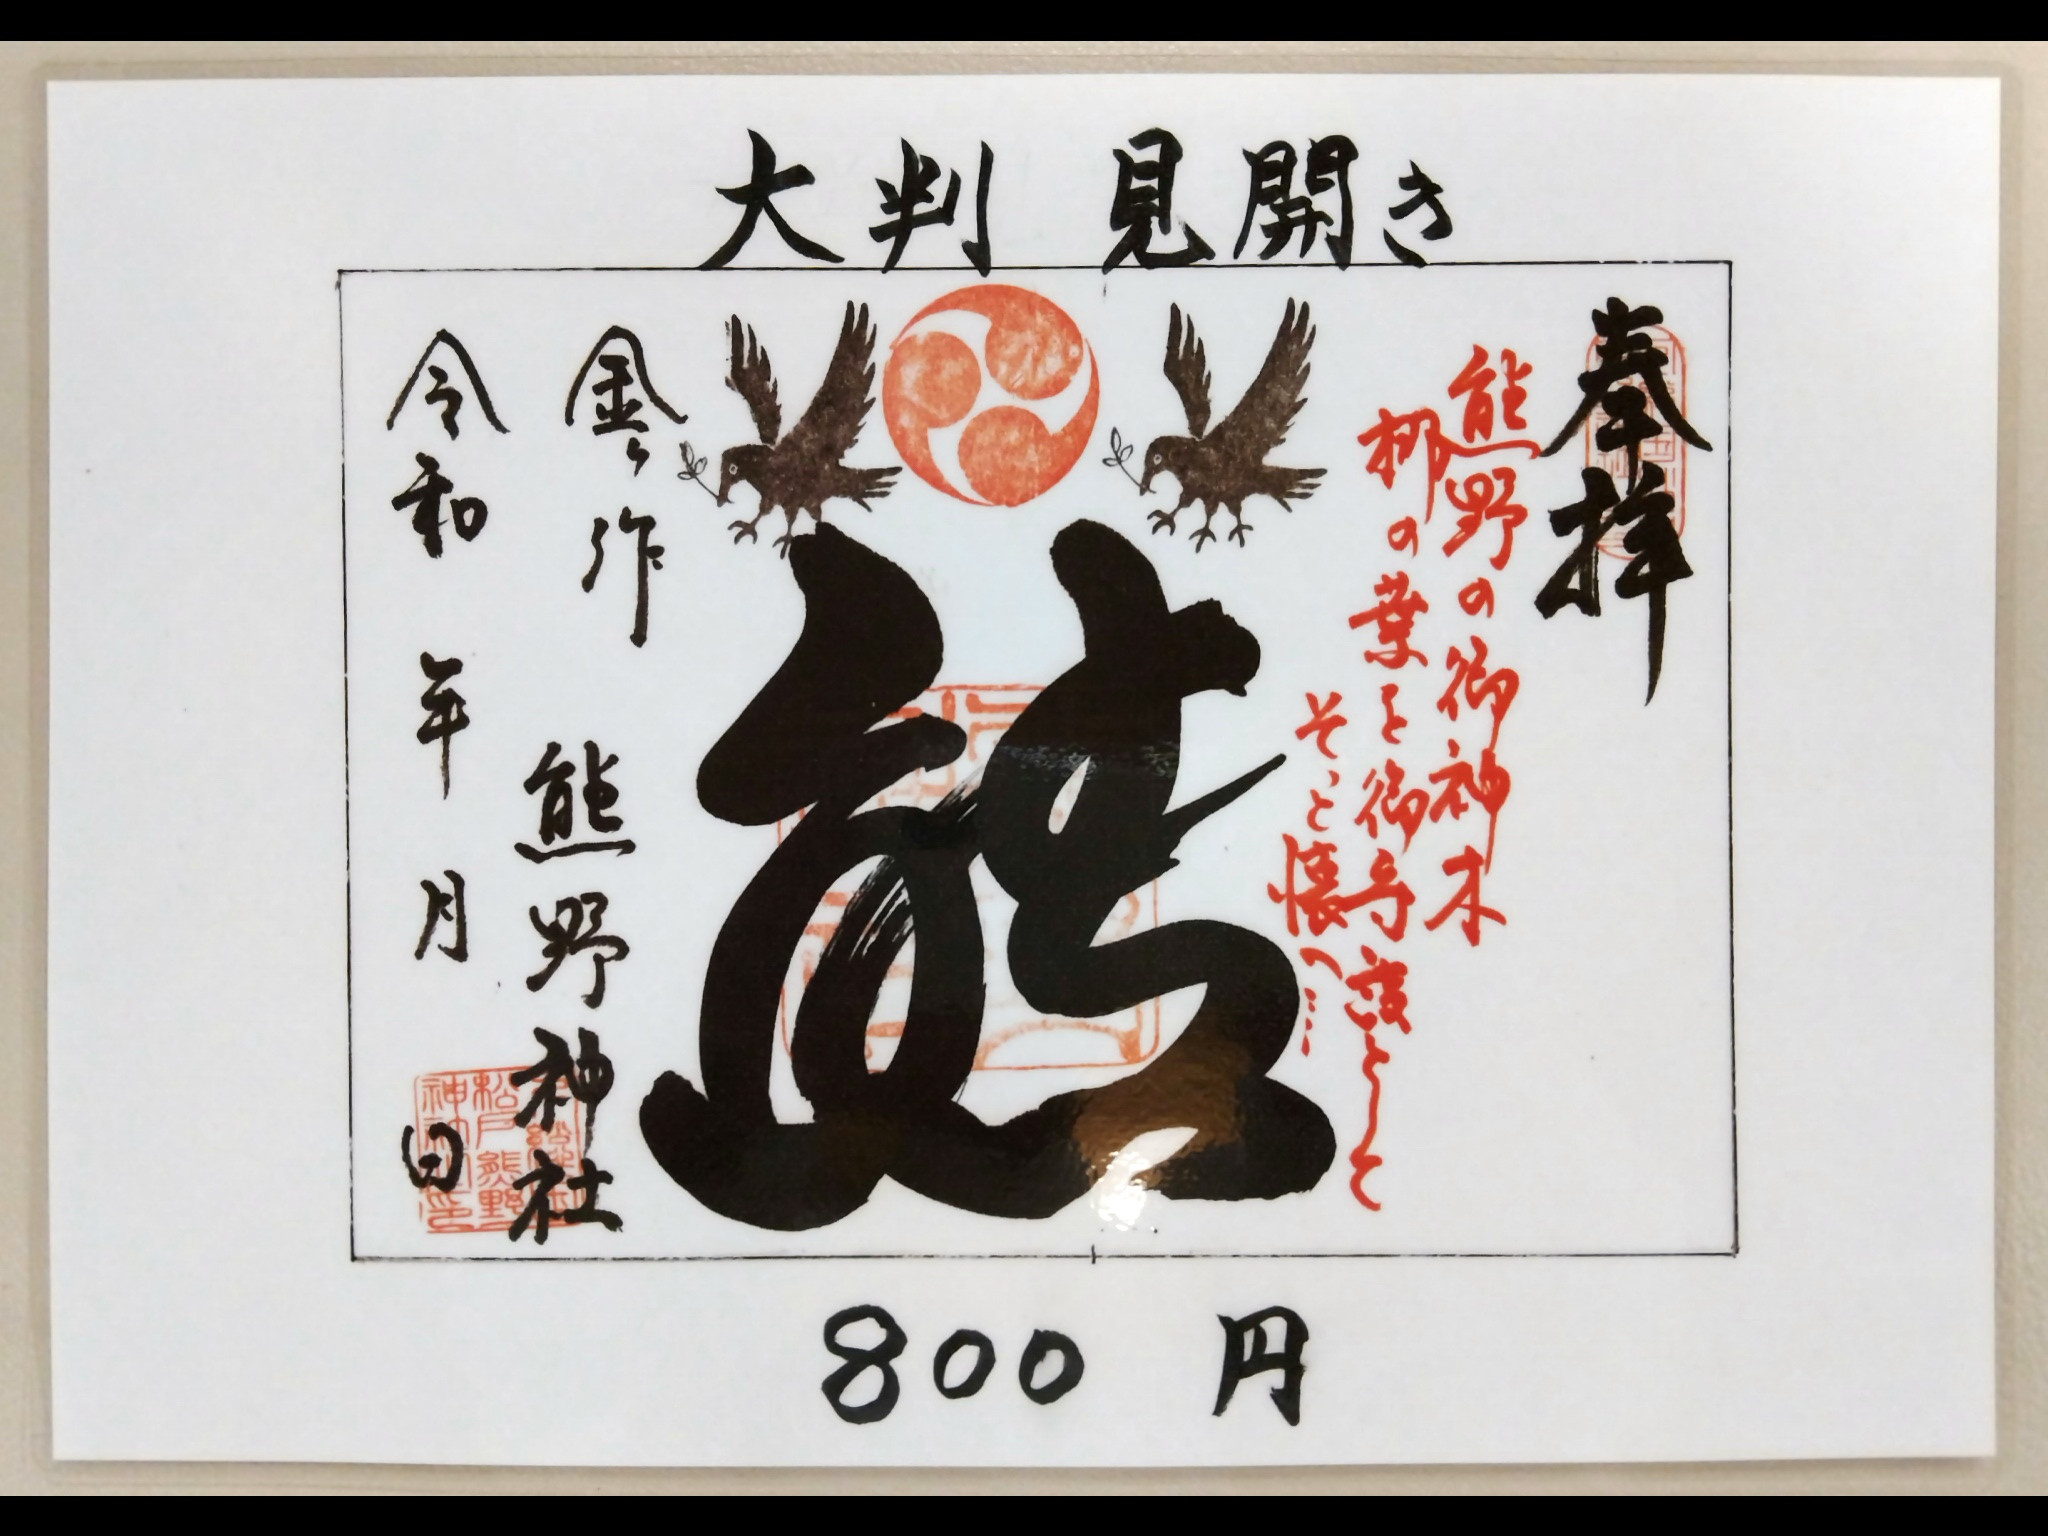 大判 見開き
奉拝
熊野の御神木
梛の葉を御守護として
そっと懐へ…
熊
金ヶ作 熊野神社
令和 年 月 日
松戸熊野
神社
800 円